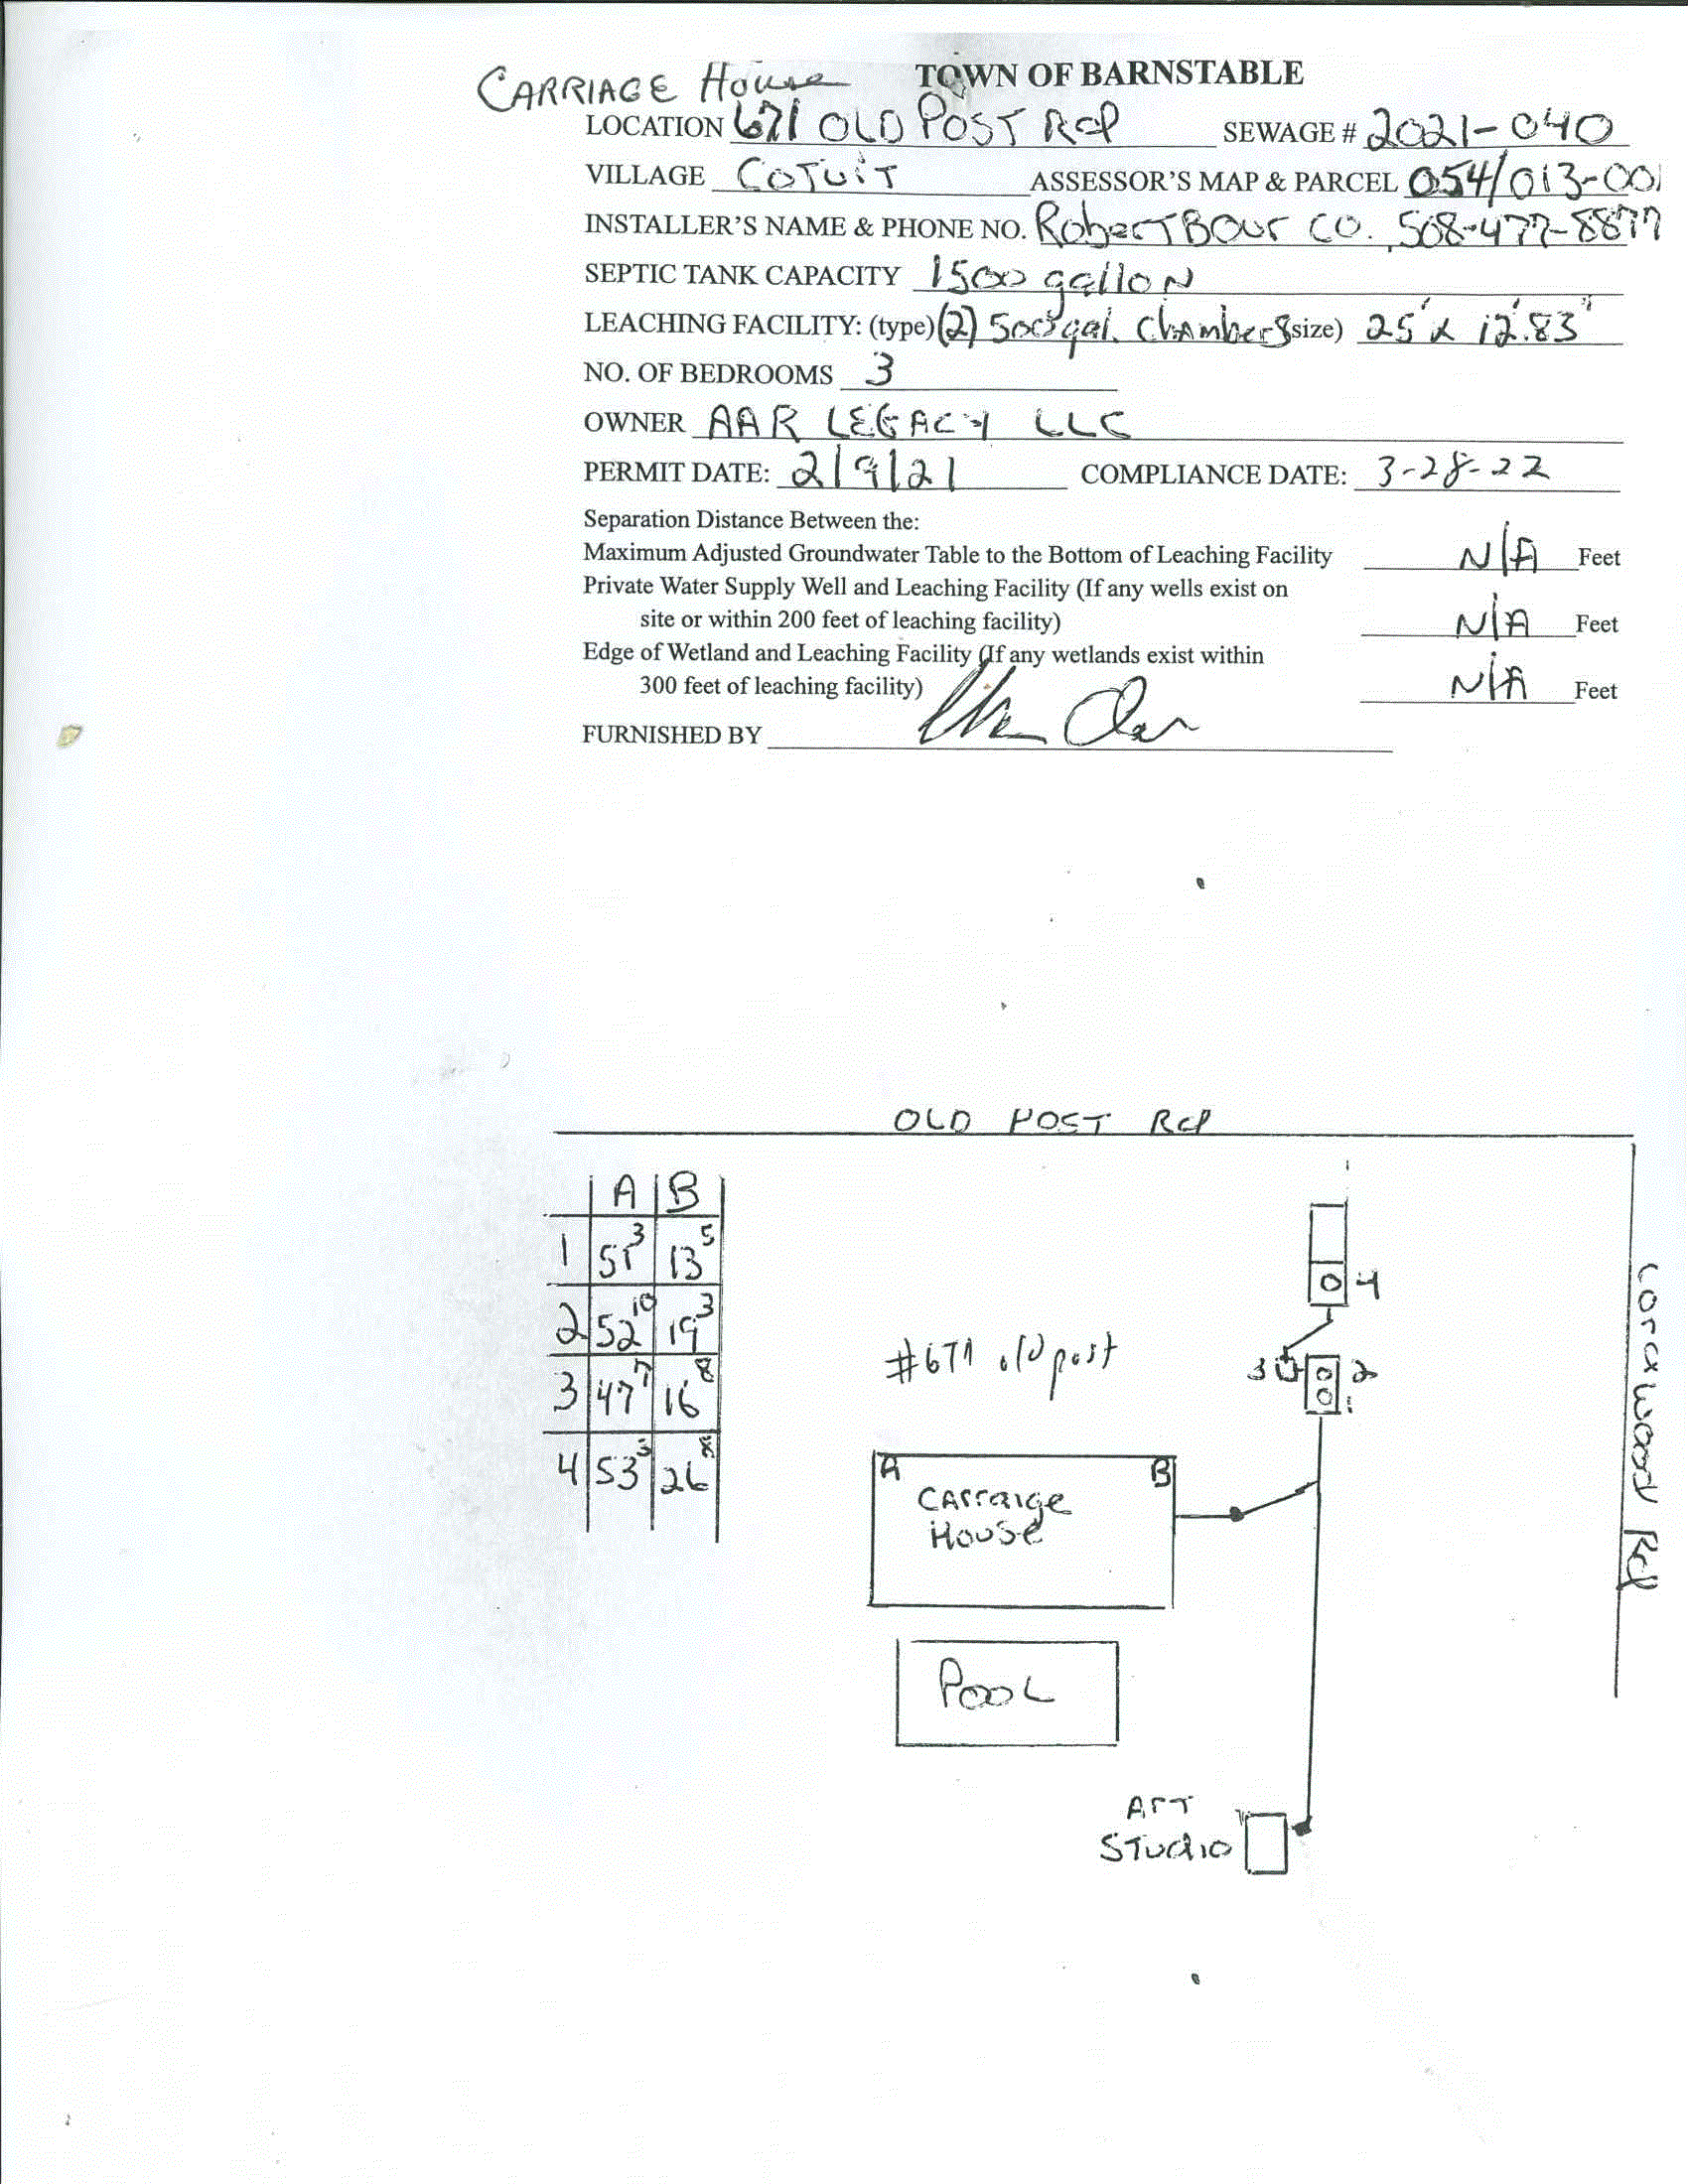 CARRIAGE House TOWN OF BARNSTABLE
LOCATION 671 OLD POST Rd SEWAGE # 2021-040
VILLAGE COTUIT ASSESSOR'S MAP & PARCEL 054/013-001
INSTALLER'S NAME & PHONE NO. Robert B Our CO. 508-477-8877
SEPTIC TANK CAPACITY 1500 gallon
LEACHING FACILITY: (type) (2) 500 gal. Chambers (size) 25' x 12.83'
NO. OF BEDROOMS 3
OWNER AAR LEGACY LLC
PERMIT DATE: 2/9/21 COMPLIANCE DATE: 3-28-22
Separation Distance Between the:
Maximum Adjusted Groundwater Table to the Bottom of Leaching Facility N/A Feet
Private Water Supply Well and Leaching Facility (If any wells exist on
site or within 200 feet of leaching facility) N/A Feet
Edge of Wetland and Leaching Facility (If any wetlands exist within
300 feet of leaching facility) N/A Feet
FURNISHED BY
OLD POST Rd
A B
1 51 3 13 5
2 52 10 19 3
3 47 7 16 8
4 53 3 26 8
4
#671 old post
3 2
1
A B
CArraige
House
POOL
ART
STUDIO
Corawood Rd